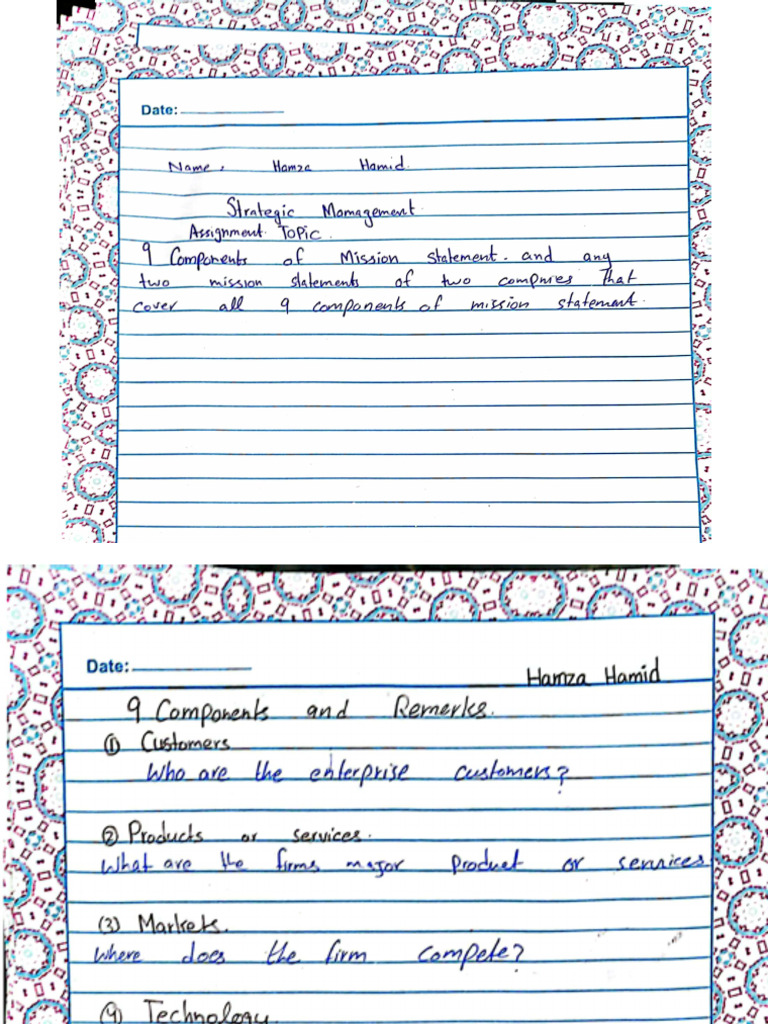 Date:
Name : Hamza Hamid.
Strategic Momagement.
Assignment Topic.
9 Components of Mission statement. and any
two mission statements of two compnies that
cover all 9 components of mission statement.
Date:
Hamza Hamid
9 Components and Remerks.
(1) Customers
Who are the enterprise customers?
(2) Products or services.
What are the firms major Product or services
(3) Markets.
Where does the firm compete?
(4) Technology